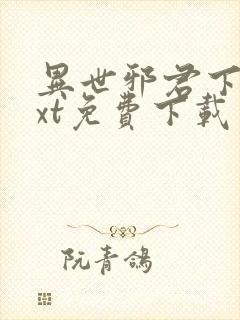 異世邪君下
xt免費下載
阮青鴿